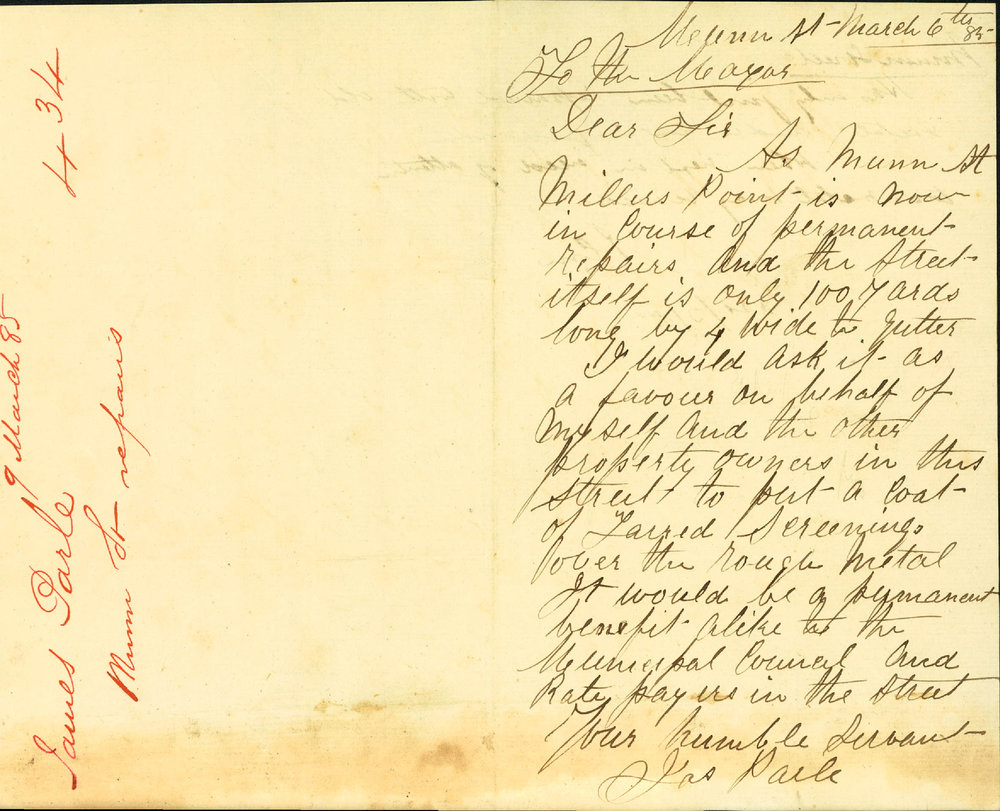 James Parle 9 March 85 434
Munn St repairs
Munn St March 6th 85
To the Mayor
Dear Sir
As Munn St
Millers Point is now
in Course of permanent
Repairs and the Street
itself is only 100 Yards
long by 4 wide to gutter
I would ask it as
a favour on behalf of
Myself and the other
property owners in this
Street to put a Coat
of Tarred Screenings
over the rough metal
It would be a permanent
benefit alike to the
Municipal Council and
Rate payers in the Street
Your humble Servant
Jas Parle